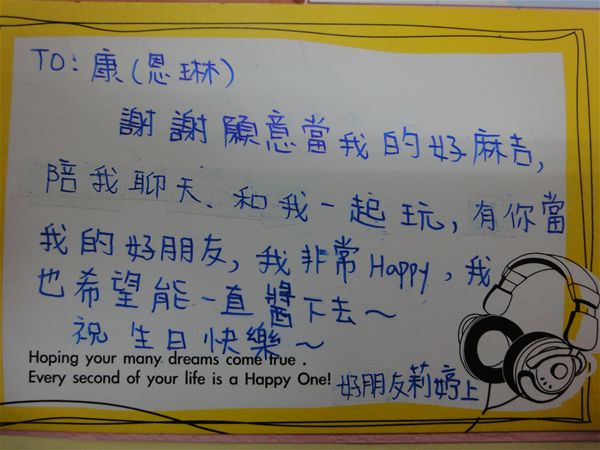 TO: 康(恩琳)
謝謝願意當我的好麻吉,
陪我聊天、和我一起玩, 有你當
我的好朋友, 我非常Happy, 我
也希望能一直醬下去~
祝 生日快樂~
Hoping your many dreams come true .
Every second of your life is a Happy One!
好朋友莉婷上